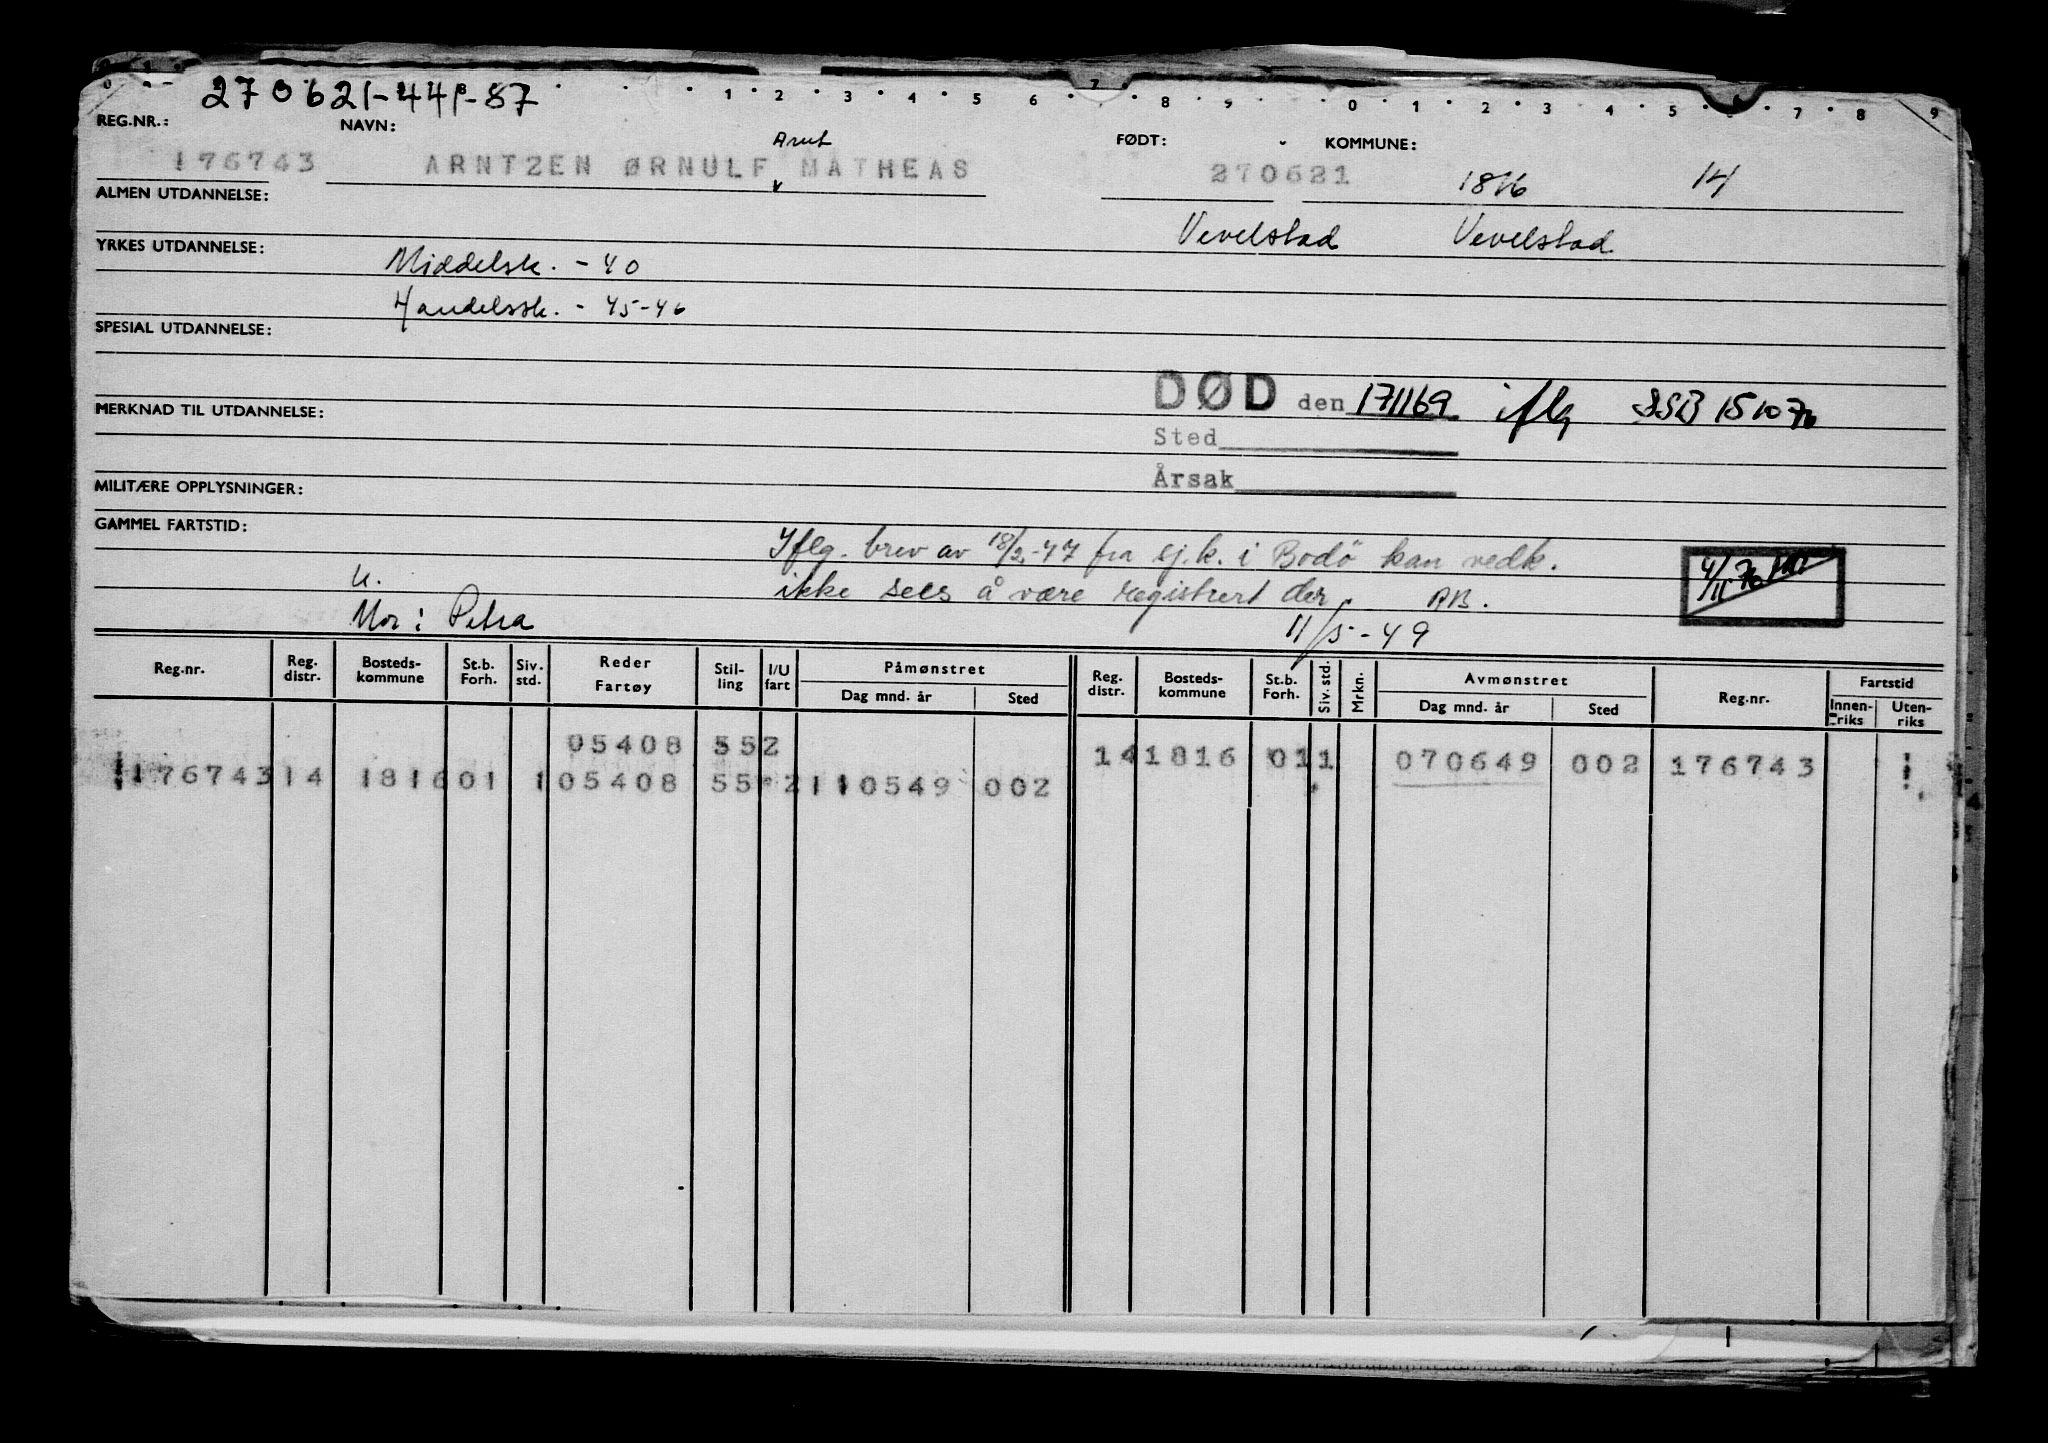 270621-441-87
1 2 3 4 5 6 7 8 9 0 1 2 3 4 5 6 7 8 9
REG.NR.: NAVN: FØDT: KOMMUNE:
Arnt
176743 ARNTZEN ØRNULF MATHEAS 270621 1816 14
ALMEN UTDANNELSE:
Vevelstad Vevelstad
YRKES UTDANNELSE:
Middelsk. - 40
Handelssk. - 45-46
SPESIAL UTDANNELSE:
DØD den 171169 iflg SSB 151070
MERKNAD TIL UTDANNELSE:
Sted
Årsak
MILITÆRE OPPLYSNINGER:
GAMMEL FARTSTID:
Iflg. brev av 18/2-47 fra sj.k. i Bodö kan vedk.
ikke sees å være registrert der. AB.
11/5-49
4/11 70
u.
Mor: Petra
Reg.nr. Reg. distr. Bosteds-kommune St.b. Forh. Siv. std. Reder Fartøy Stil-ling I/U fart Påmønstret Dag mnd. år Sted Reg. distr. Bosteds-kommune St.b. Forh. Siv. std. Mrkn. Avmønstret Dag mnd. år Sted Reg.nr. Fartstid Innen-riks Uten-riks
05408 552 14 1816 01 1 070649 002 176743 1
176743 14 1816 01 1 05408 55 2 110549 002